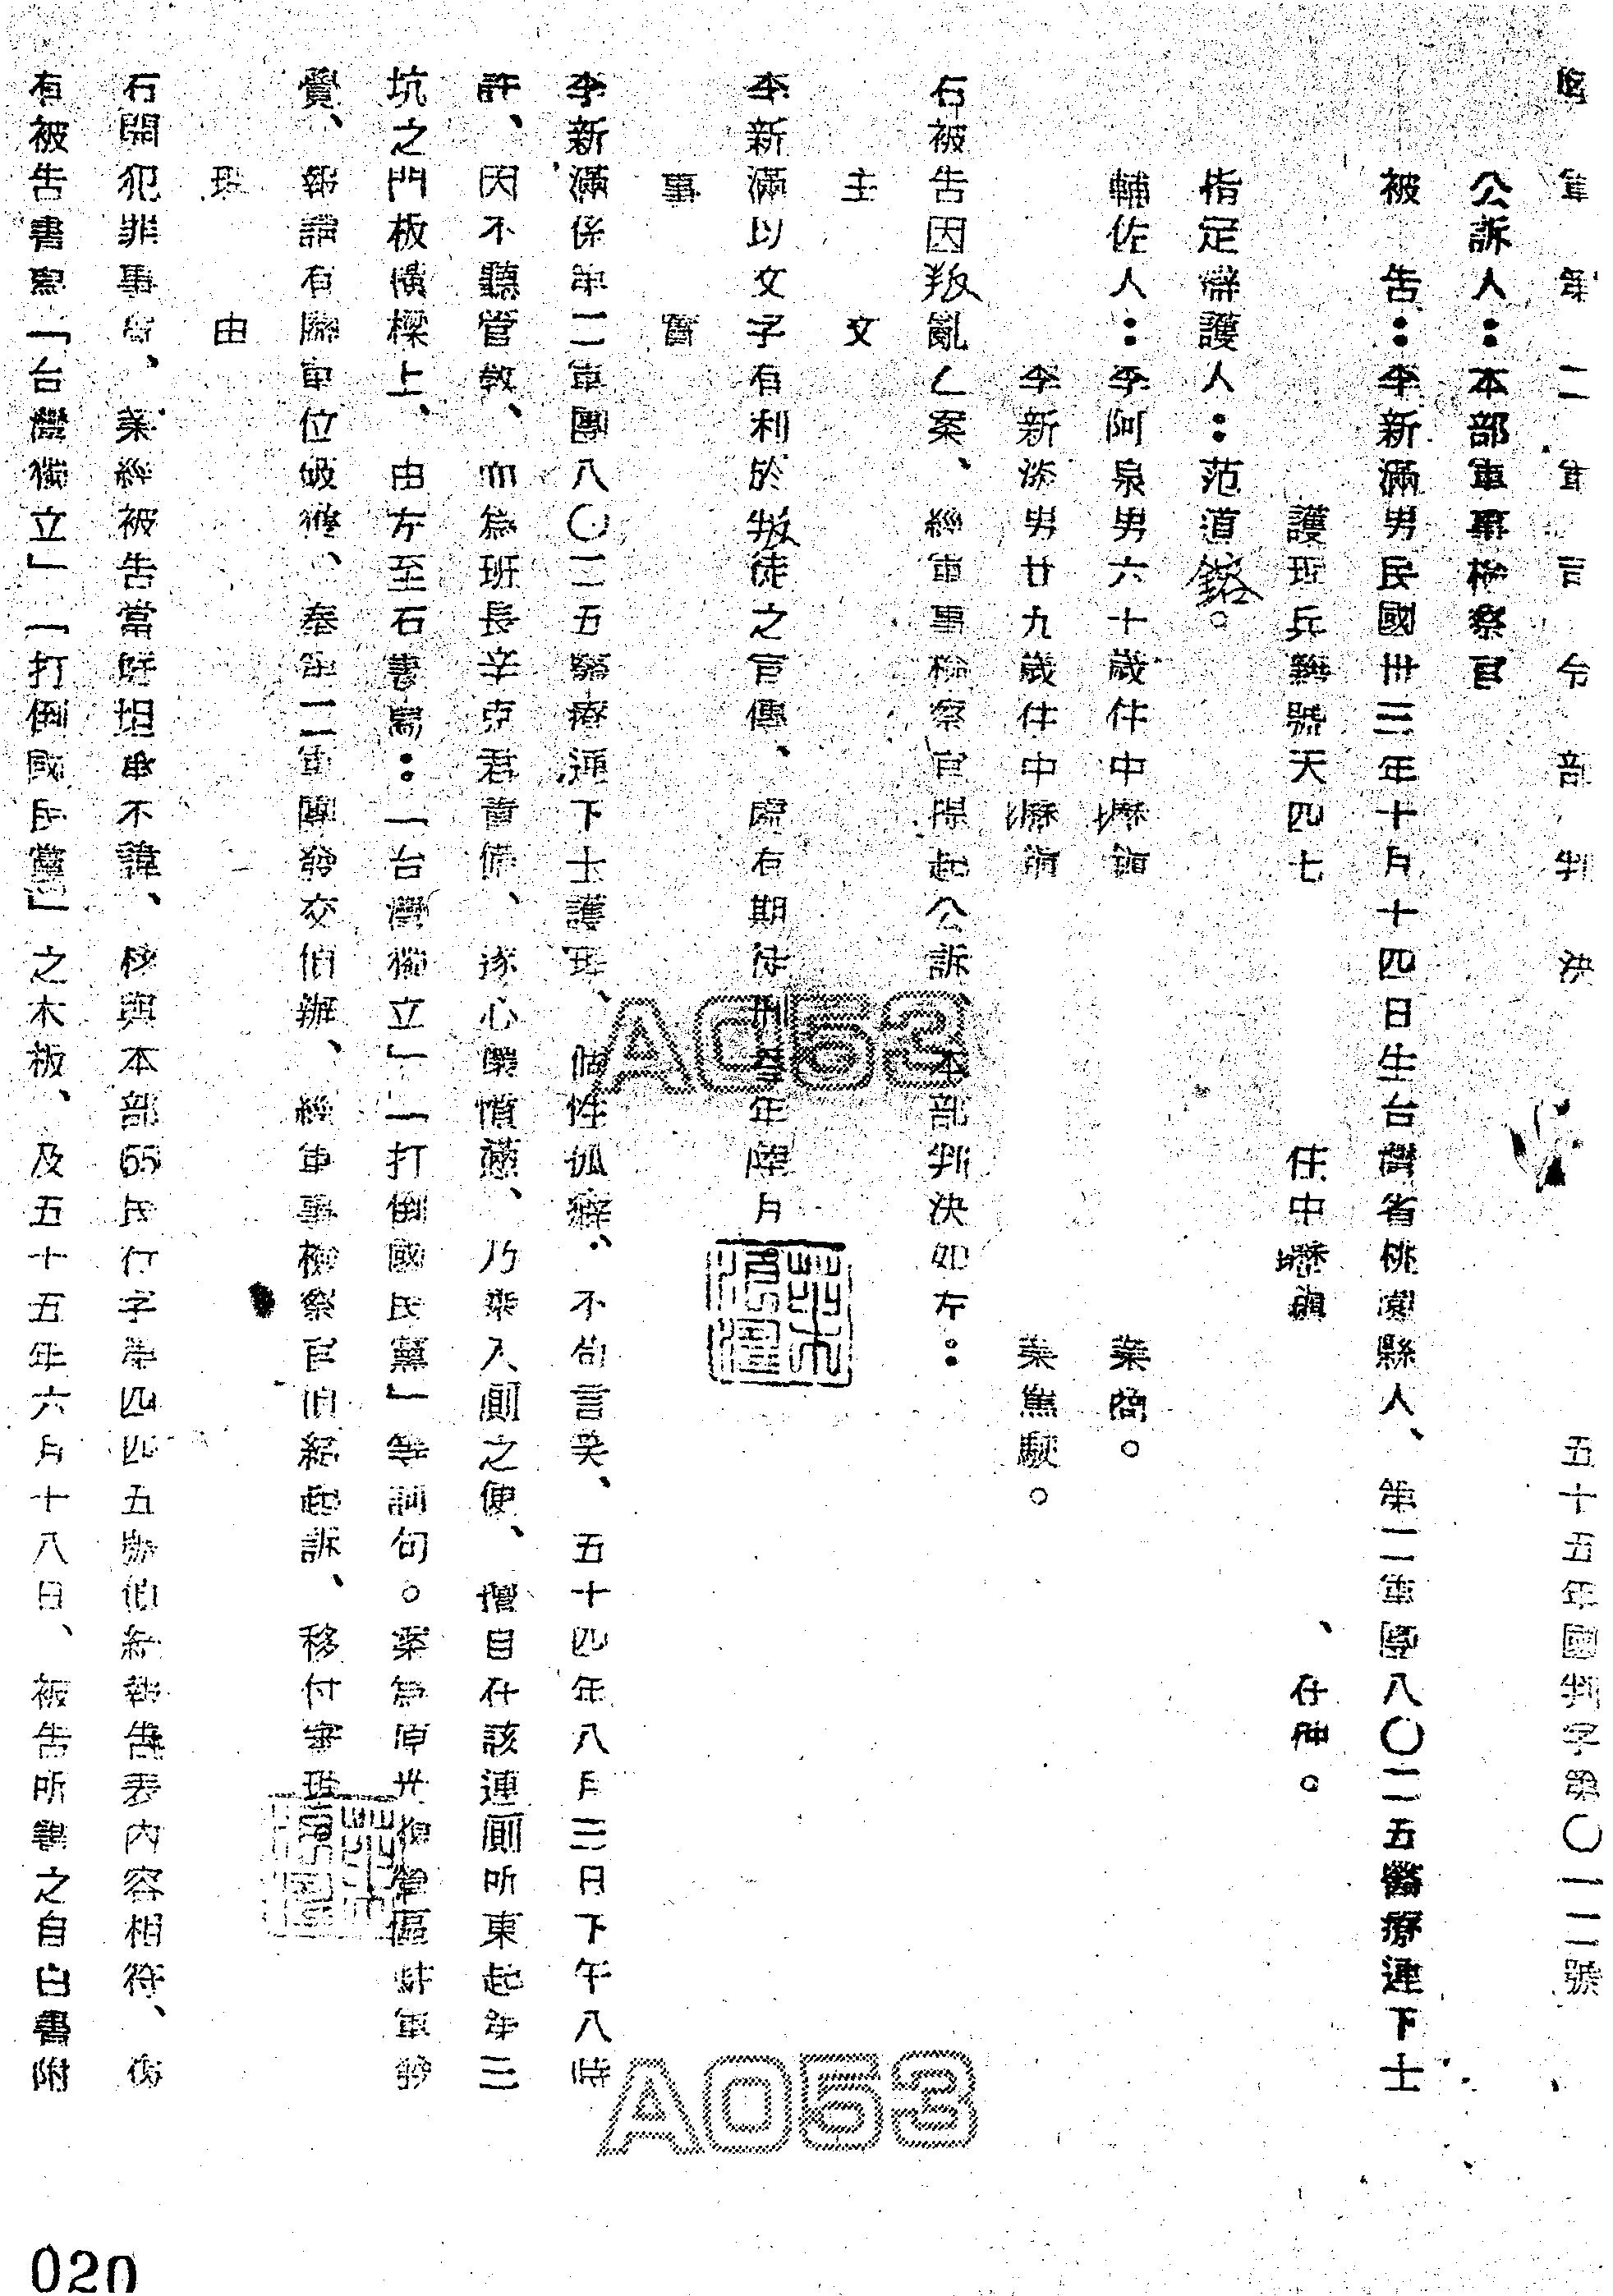 陸軍第二軍團司令部判決 五十五年國判字第〇一二號
公訴人：本部軍事檢察官
被告：李新滿男民國卅三年十月十四日生台灣省桃園縣人、第二軍團八〇二五醫療連下士
護理兵籍號天四七 住中壢鎮 、在押。
指定辯護人：范道鎔。
輔佐人：李阿泉男六十歲住中壢鎮 業商。
李新 男廿九歲住中壢鎮 業駕駛。
右被告因叛亂乙案、經軍事檢察官提起公訴、本部判決如左：
主文
李新滿以文字有利於叛徒之宣傳、處有期徒刑 年陸月
事實
李新滿係第二軍團八〇二五醫療連下士護理、個性孤癖、不苟言笑、五十四年八月三日下午八時
許、因不聽管教、而為班長辛克君責備、遂心懷憤懣、乃乘入廁之便、擅自在該連廁所東起第三
坑之門板橫樑上、由左至右書寫：「台灣獨立」「打倒國民黨」等詞句。案為原光復營區駐軍發
覺、報請有關單位破獲、奉第二軍團發交偵辦、經軍事檢察官偵結起訴、移付審理
理由
右開犯罪事實、業經被告當庭坦承不諱、核與本部55 行字第四四五號偵 報告表內容相符、復
有被告書寫「台灣獨立」「打倒國民黨」之木板、及五十五年六月十八日、被告所書之自白書附
A053
A053
020